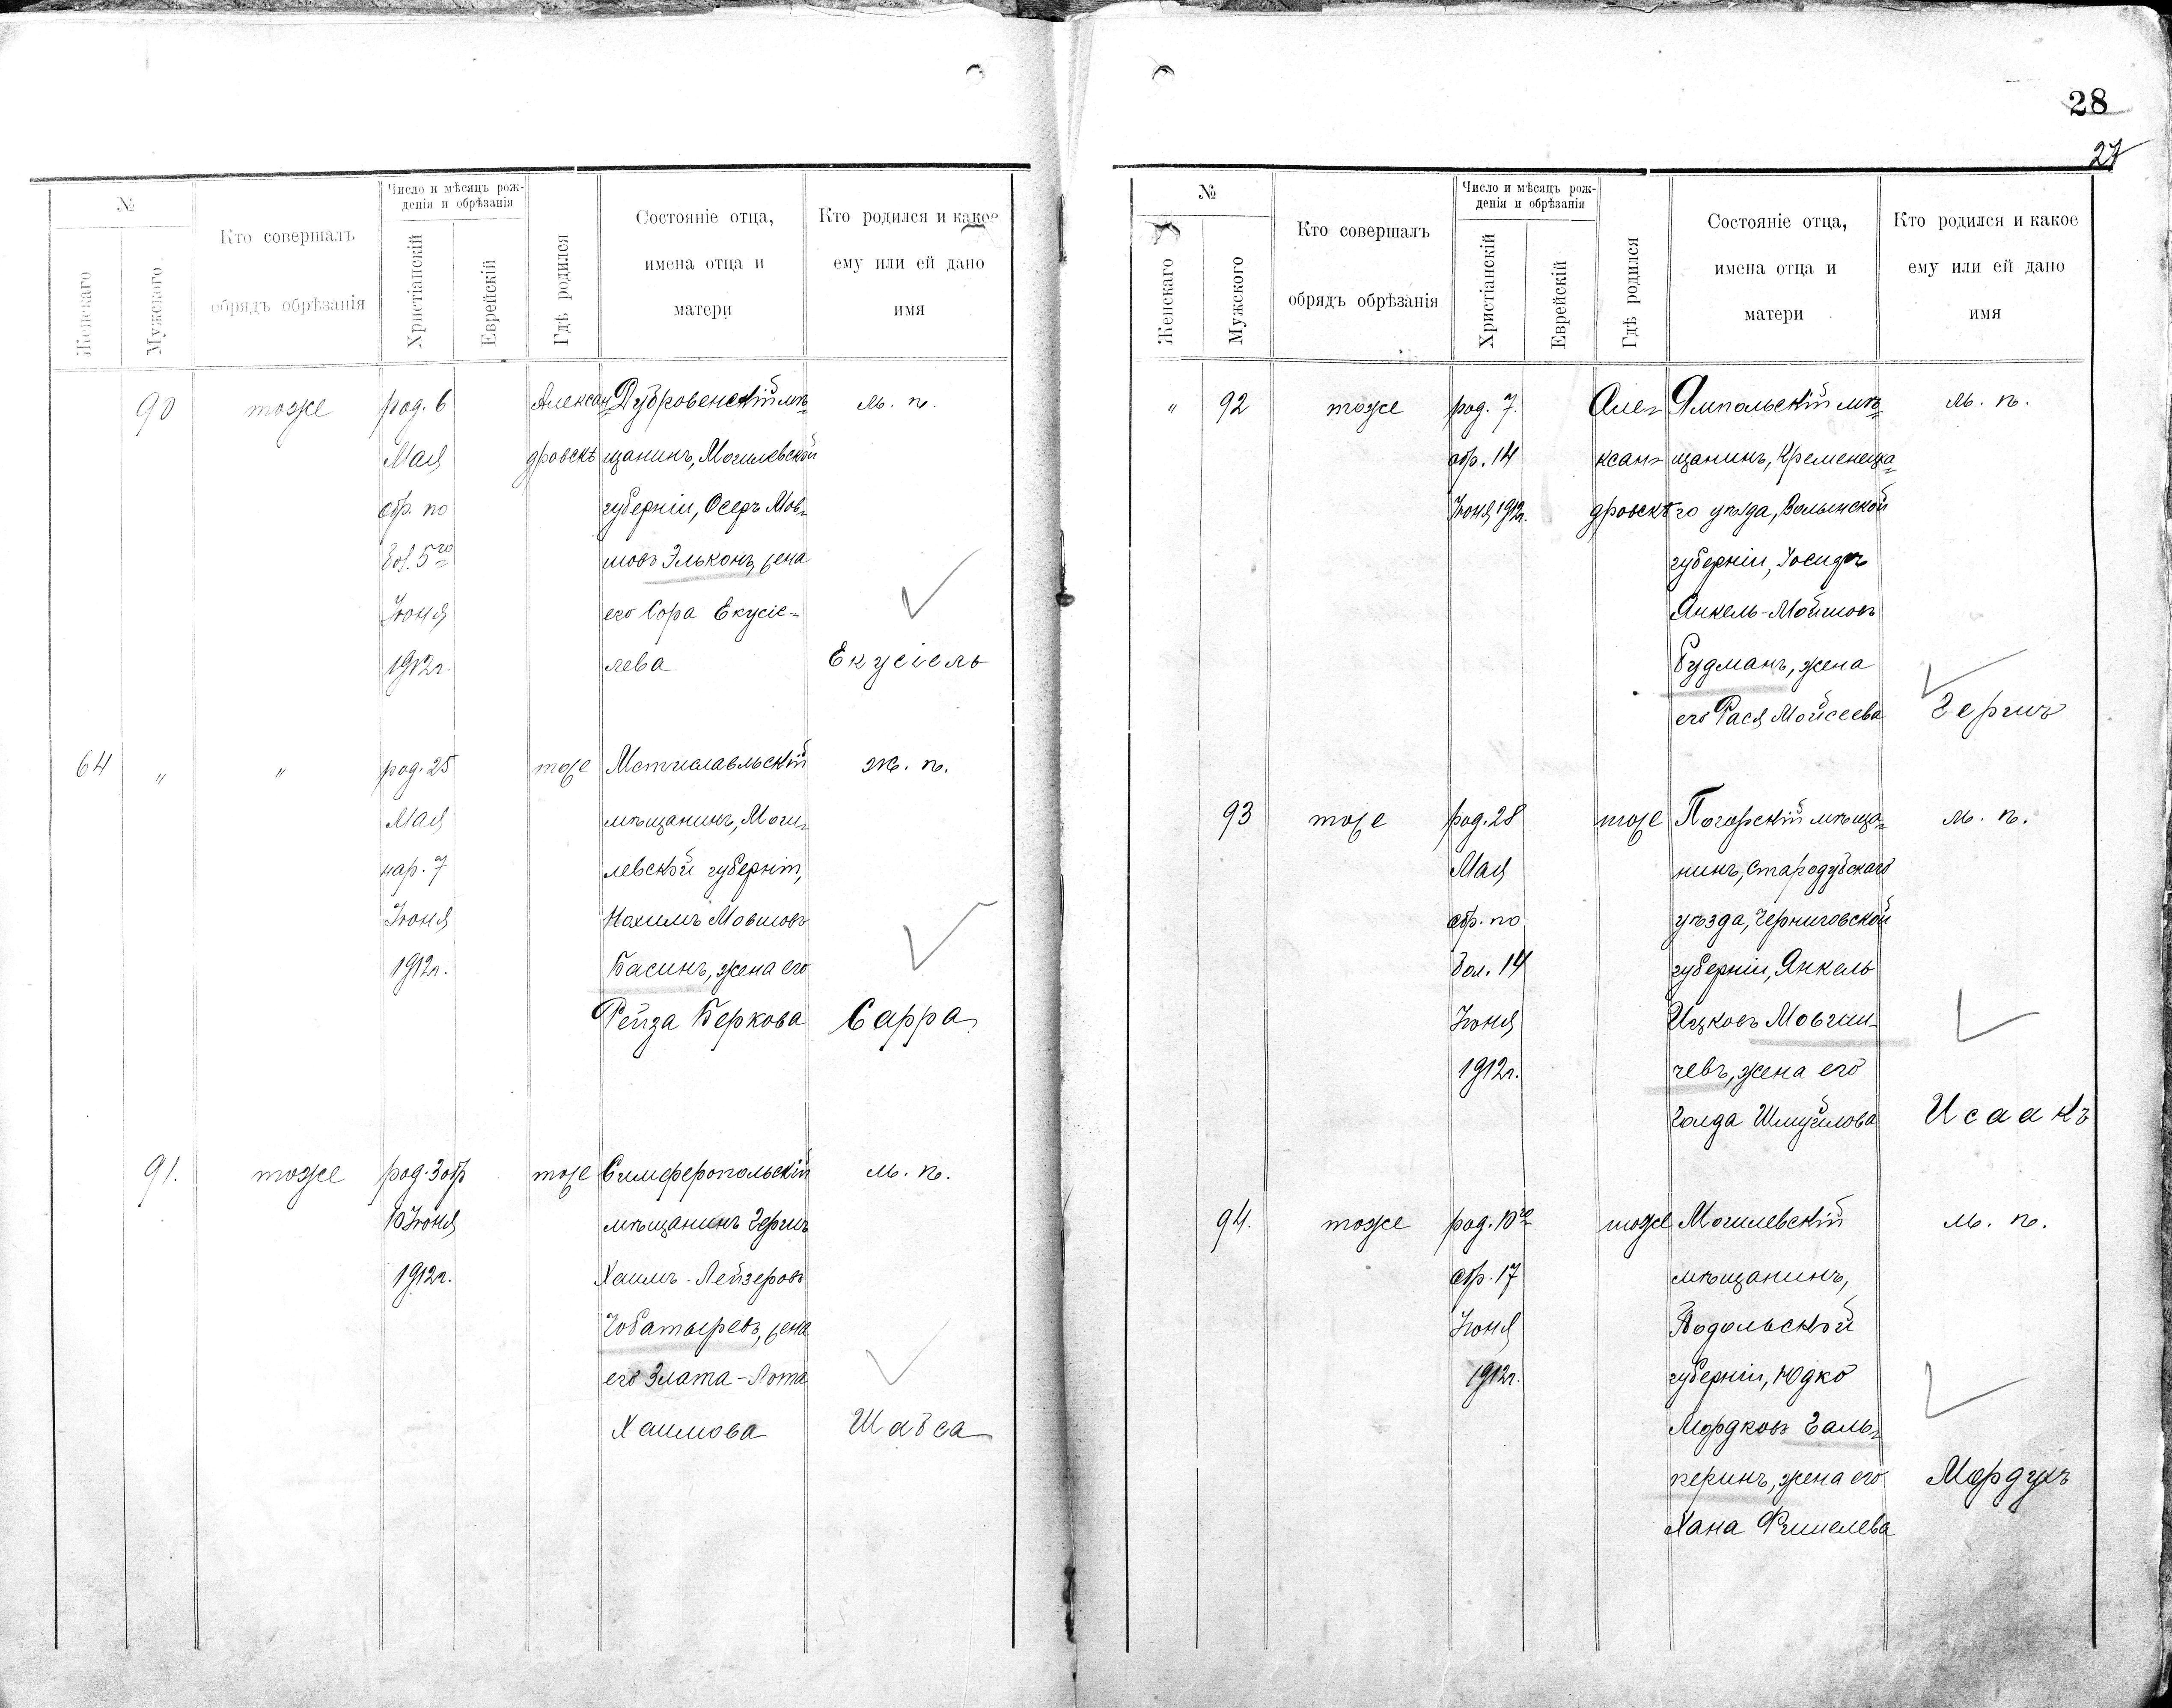 28
27
№
Женскаго
Мужского
Кто совершалъ
обрядъ обрѣзанія
Число и мѣсяцъ рож-
денія и обрѣзанія
Христіанскій
Еврейскій
Гдѣ родился
Состояніе отца,
имена отца и
матери
Кто родился и какое
ему или ей дано
имя
90 тоже род. 6 Алексан Дубровенскій мѣ- м. п.
Мая дровскѣ щанинъ, Могилевской
обр. по губерніи, Осеръ Мов-
бол. 5го шовъ Эльконъ, жена
Іюня его Сора Екусіе-
1912г. лева Екусіель
64 " " род. 25 тоже Мстиславльскій ж. п.
Мая мѣщанинъ, Моги-
нар. 7 левской губерніи,
Іюня Нохимъ Мовшовъ
1912г. Басинъ, жена его
Рейза Беркова Сарра
91. тоже род. 3 обр тоже Симферопольскій м. п.
10 Іюня мѣщанинъ Гершъ
1912г. Хаимъ-Лейзеровъ
Чобатыревъ, жена
его Злата-Лота
Хаимова Шабса
№
Женскаго
Мужского
Кто совершалъ
обрядъ обрѣзанія
Число и мѣсяцъ рож-
денія и обрѣзанія
Христіанскій
Еврейскій
Гдѣ родился
Состояніе отца,
имена отца и
матери
Кто родился и какое
ему или ей дано
имя
" 92 тоже род. 7. Але- Ямпольскій мѣ- м. п.
обр. 14 ксан- щанинъ, Кременецка-
Іюня 1912г. дровскѣ го уѣзда, Волынской
губерніи, Іосифъ
Янкель-Мойшовъ
Гудманъ, жена
его Рася Мойсеева Гершъ
93 тоже род. 28 тоже Погарскій мѣща- м. п.
Мая нинъ, Стародубскаго
обр. по уѣзда, Черниговской
бол. 14 губерніи, Янкель
Іюня Ицковъ Мовши-
1912г. чевъ, жена его
Голда Шмуйлова Исаакъ
94. тоже род. 10го тоже Могилевскій м. п.
обр. 17 мѣщанинъ,
Іюня Подольской
1912г. губерніи, Юдко
Мордковъ Галь-
перинъ, жена его Мордухъ
Хана Фишелева